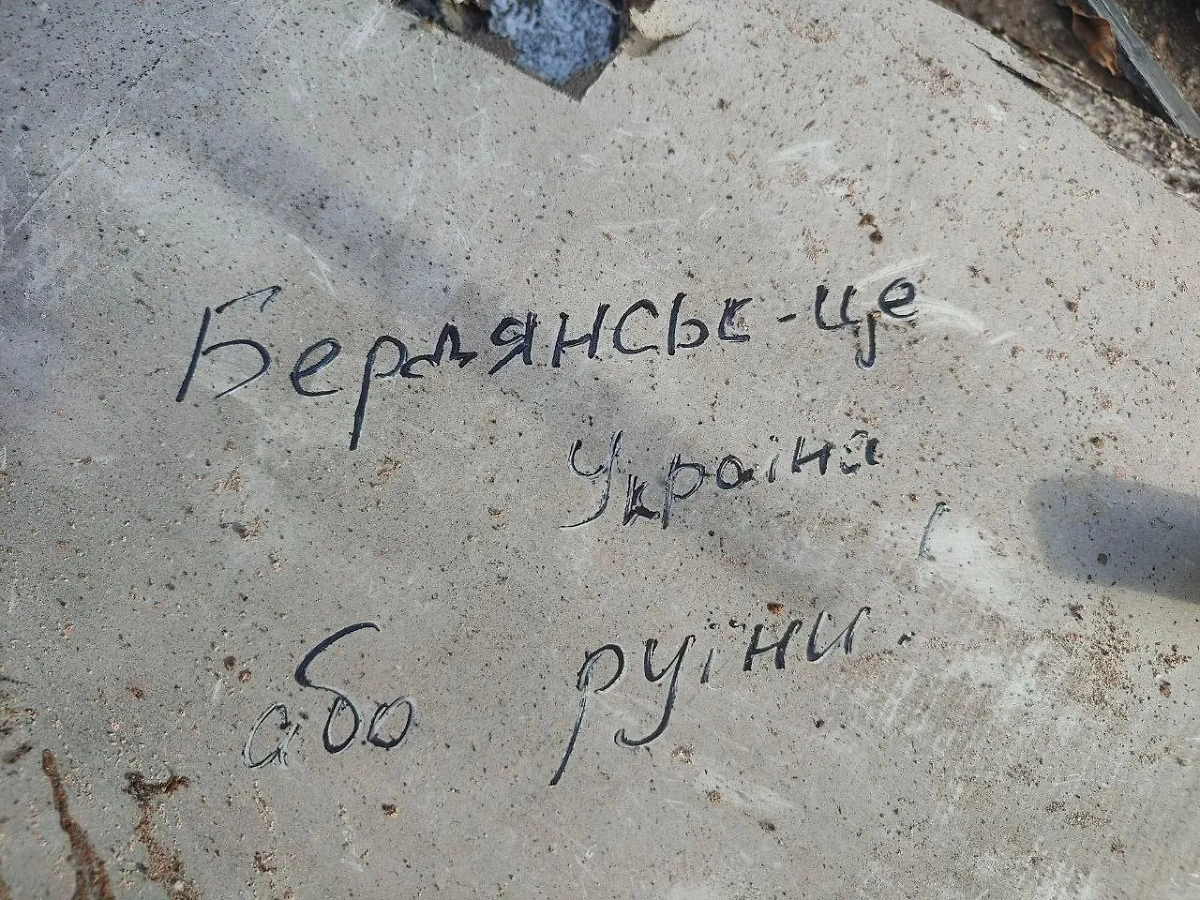 Бердянськ - це
Україна
або руїни!